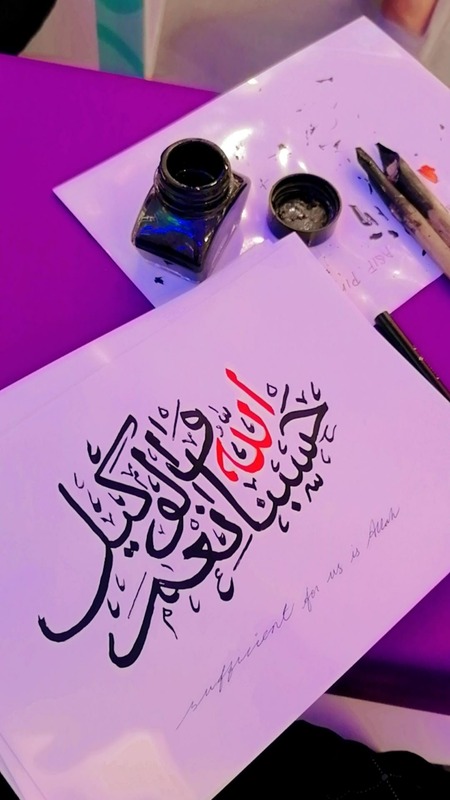 حسبنا الله ونعم الوكيل
sufficient for us is Allah